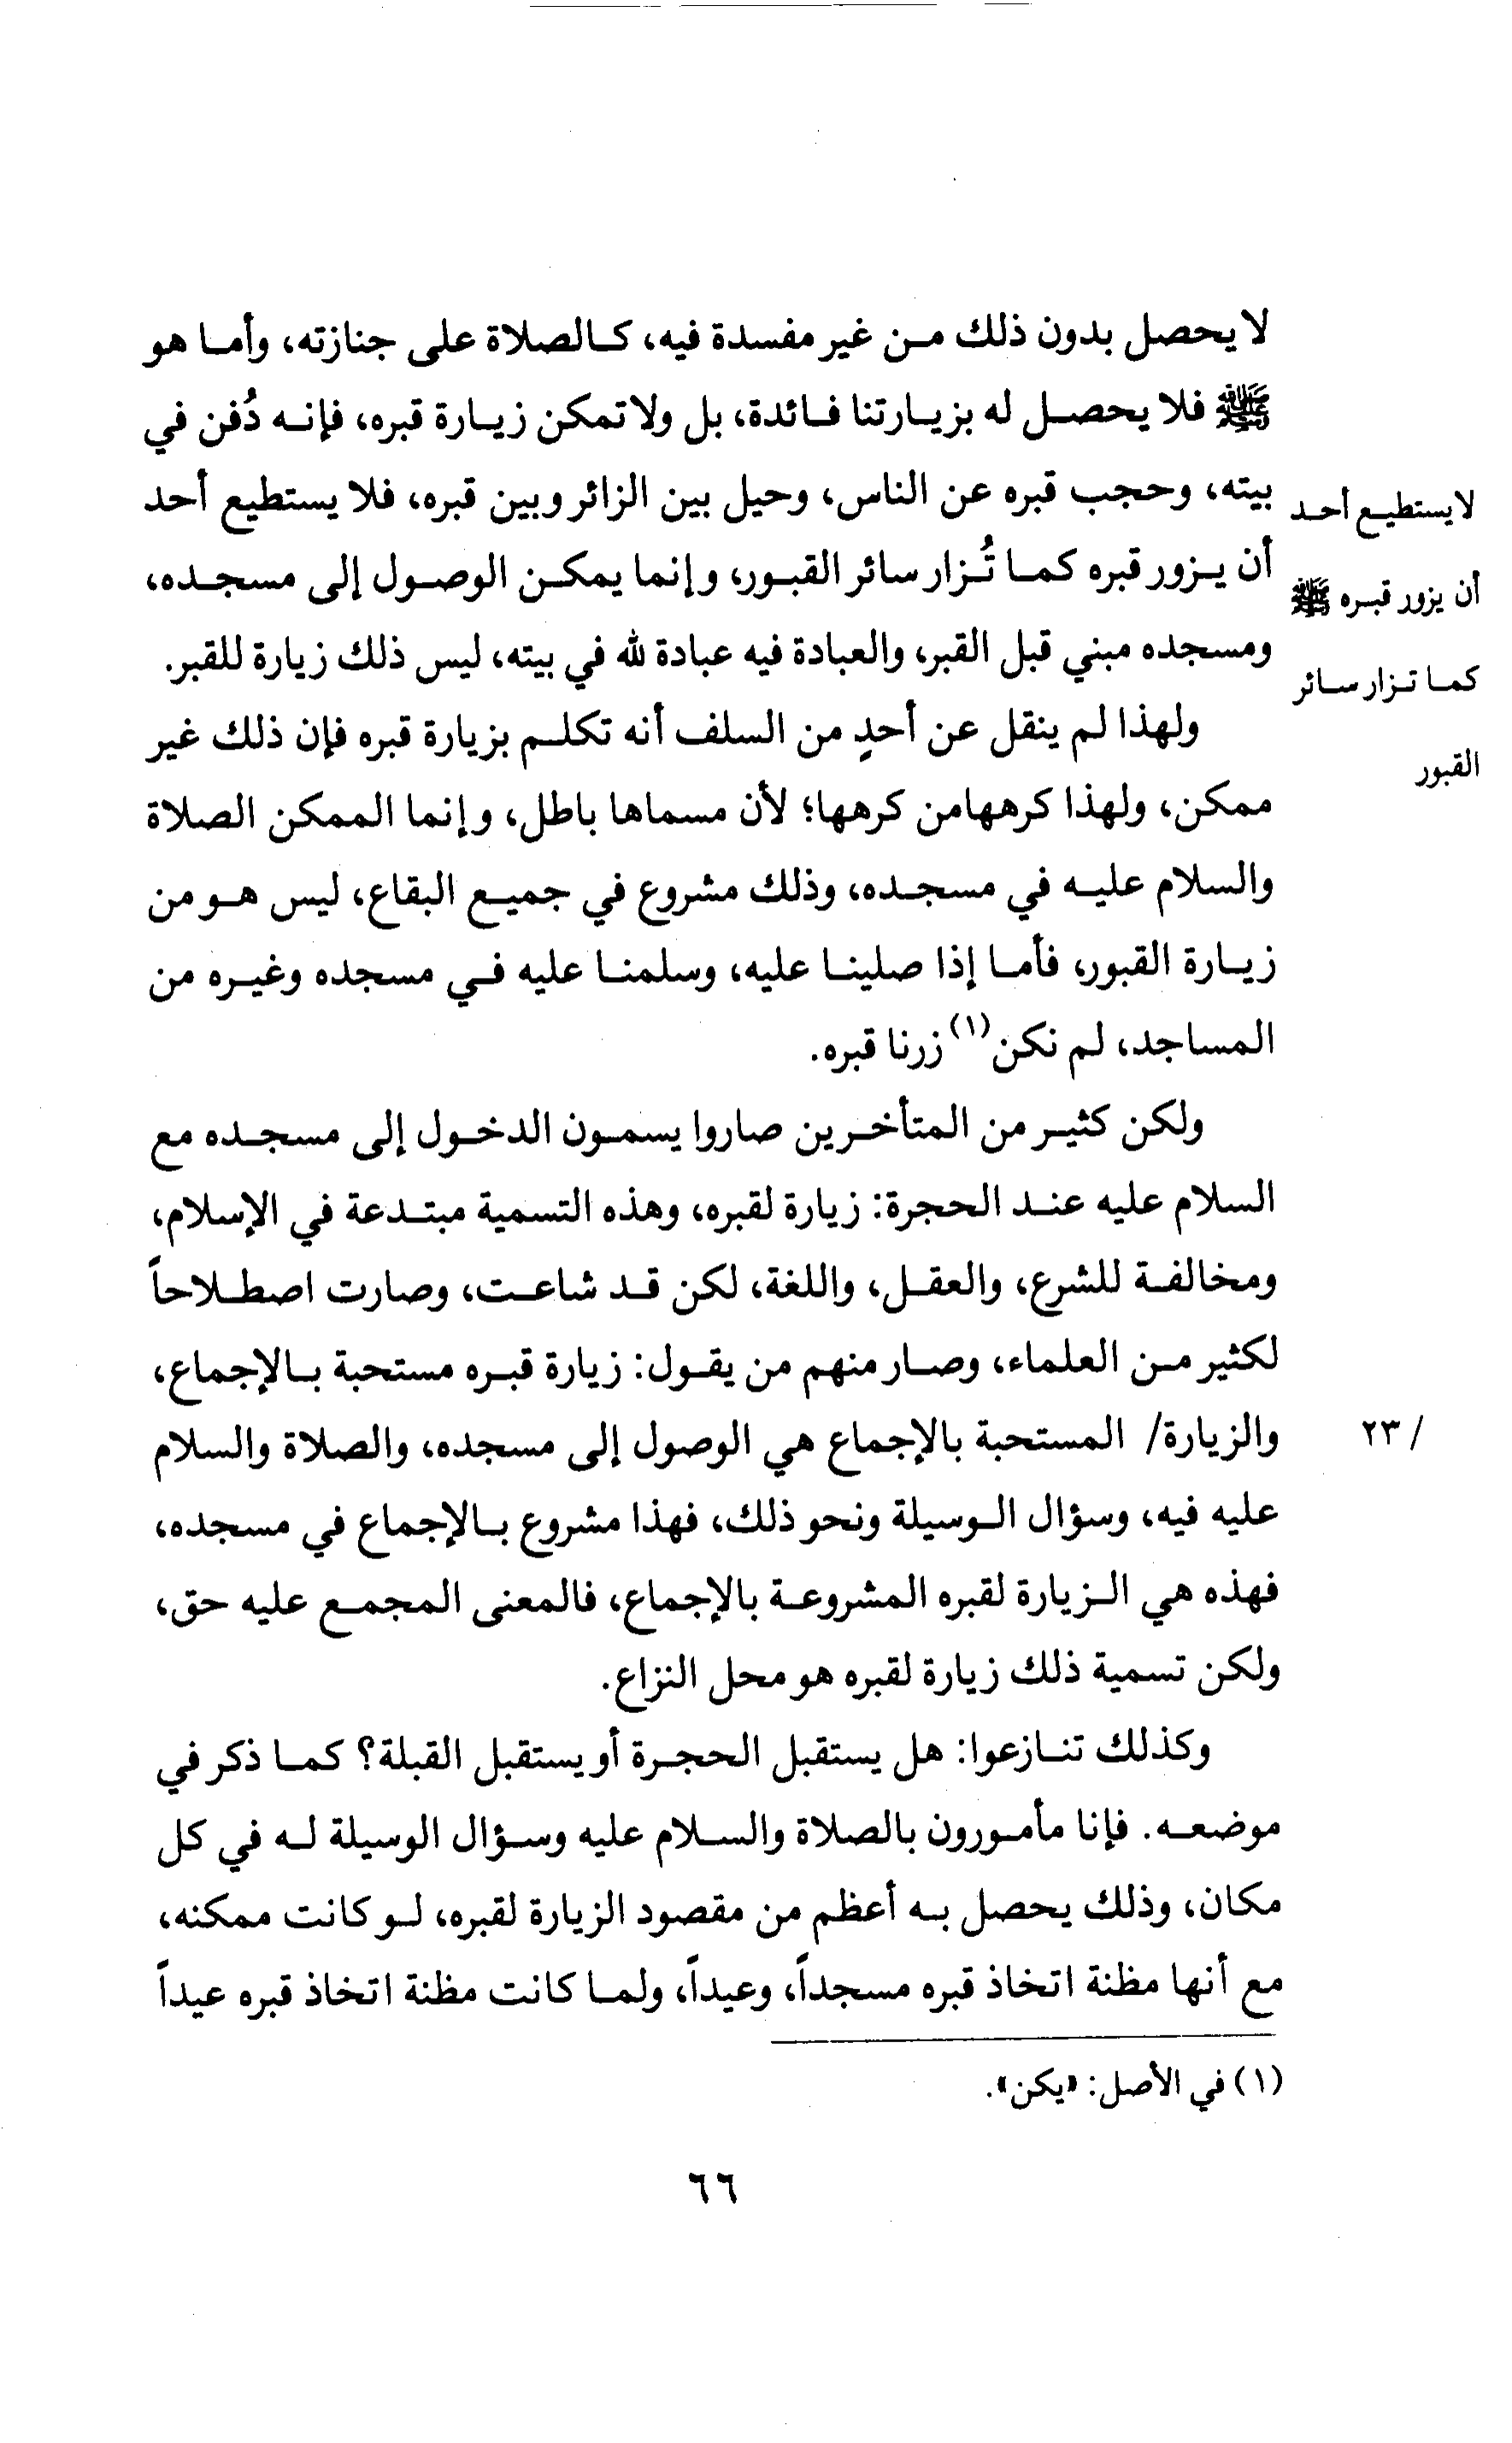 لا يحصل بدون ذلك من غير مفسدة فيه، كالصلاة على جنازته، وأما هو
ﷺ فلا يحصل له بزيارتنا فائدة، بل ولا تمكن زيارة قبره، فإنه دُفن في
بيته، وحجب قبره عن الناس، وحيل بين الزائر وبين قبره، فلا يستطيع أحد
أن يزور قبره كما تُزار سائر القبور، وإنما يمكن الوصول إلى مسجده،
ومسجده مبني قبل القبر، والعبادة فيه عبادة لله في بيته، ليس ذلك زيارة للقبر.
لا يستطيع أحد
أن يزور قبره ﷺ
كما تزار سائر
القبور
ولهذا لم ينقل عن أحدٍ من السلف أنه تكلم بزيارة قبره فإن ذلك غير
ممكن، ولهذا كرهها من كرهها؛ لأن مسماها باطل، وإنما الممكن الصلاة
والسلام عليه في مسجده، وذلك مشروع في جميع البقاع، ليس هو من
زيارة القبور، فأما إذا صلينا عليه، وسلمنا عليه في مسجده وغيره من
المساجد، لم نكن(١) زرنا قبره.
ولكن كثير من المتأخرين صاروا يسمون الدخول إلى مسجده مع
السلام عليه عند الحجرة: زيارة لقبره، وهذه التسمية مبتدعة في الإسلام،
ومخالفة للشرع، والعقل، واللغة، لكن قد شاعت، وصارت اصطلاحاً
لكثير من العلماء، وصار منهم من يقول: زيارة قبره مستحبة بالإجماع،
والزيارة/ المستحبة بالإجماع هي الوصول إلى مسجده، والصلاة والسلام
/ ٢٣
عليه فيه، وسؤال الوسيلة ونحو ذلك، فهذا مشروع بالإجماع في مسجده،
فهذه هي الزيارة لقبره المشروعة بالإجماع، فالمعنى المجمع عليه حق،
ولكن تسمية ذلك زيارة لقبره هو محل النزاع.
وكذلك تنازعوا: هل يستقبل الحجرة أو يستقبل القبلة؟ كما ذكر في
موضعه. فإنا مأمورون بالصلاة والسلام عليه وسؤال الوسيلة له في كل
مكان، وذلك يحصل به أعظم من مقصود الزيارة لقبره، لو كانت ممكنه،
مع أنها مظنة اتخاذ قبره مسجداً، وعيداً، ولما كانت مظنة اتخاذ قبره عيداً
(١) في الأصل: «يكن».
٦٦